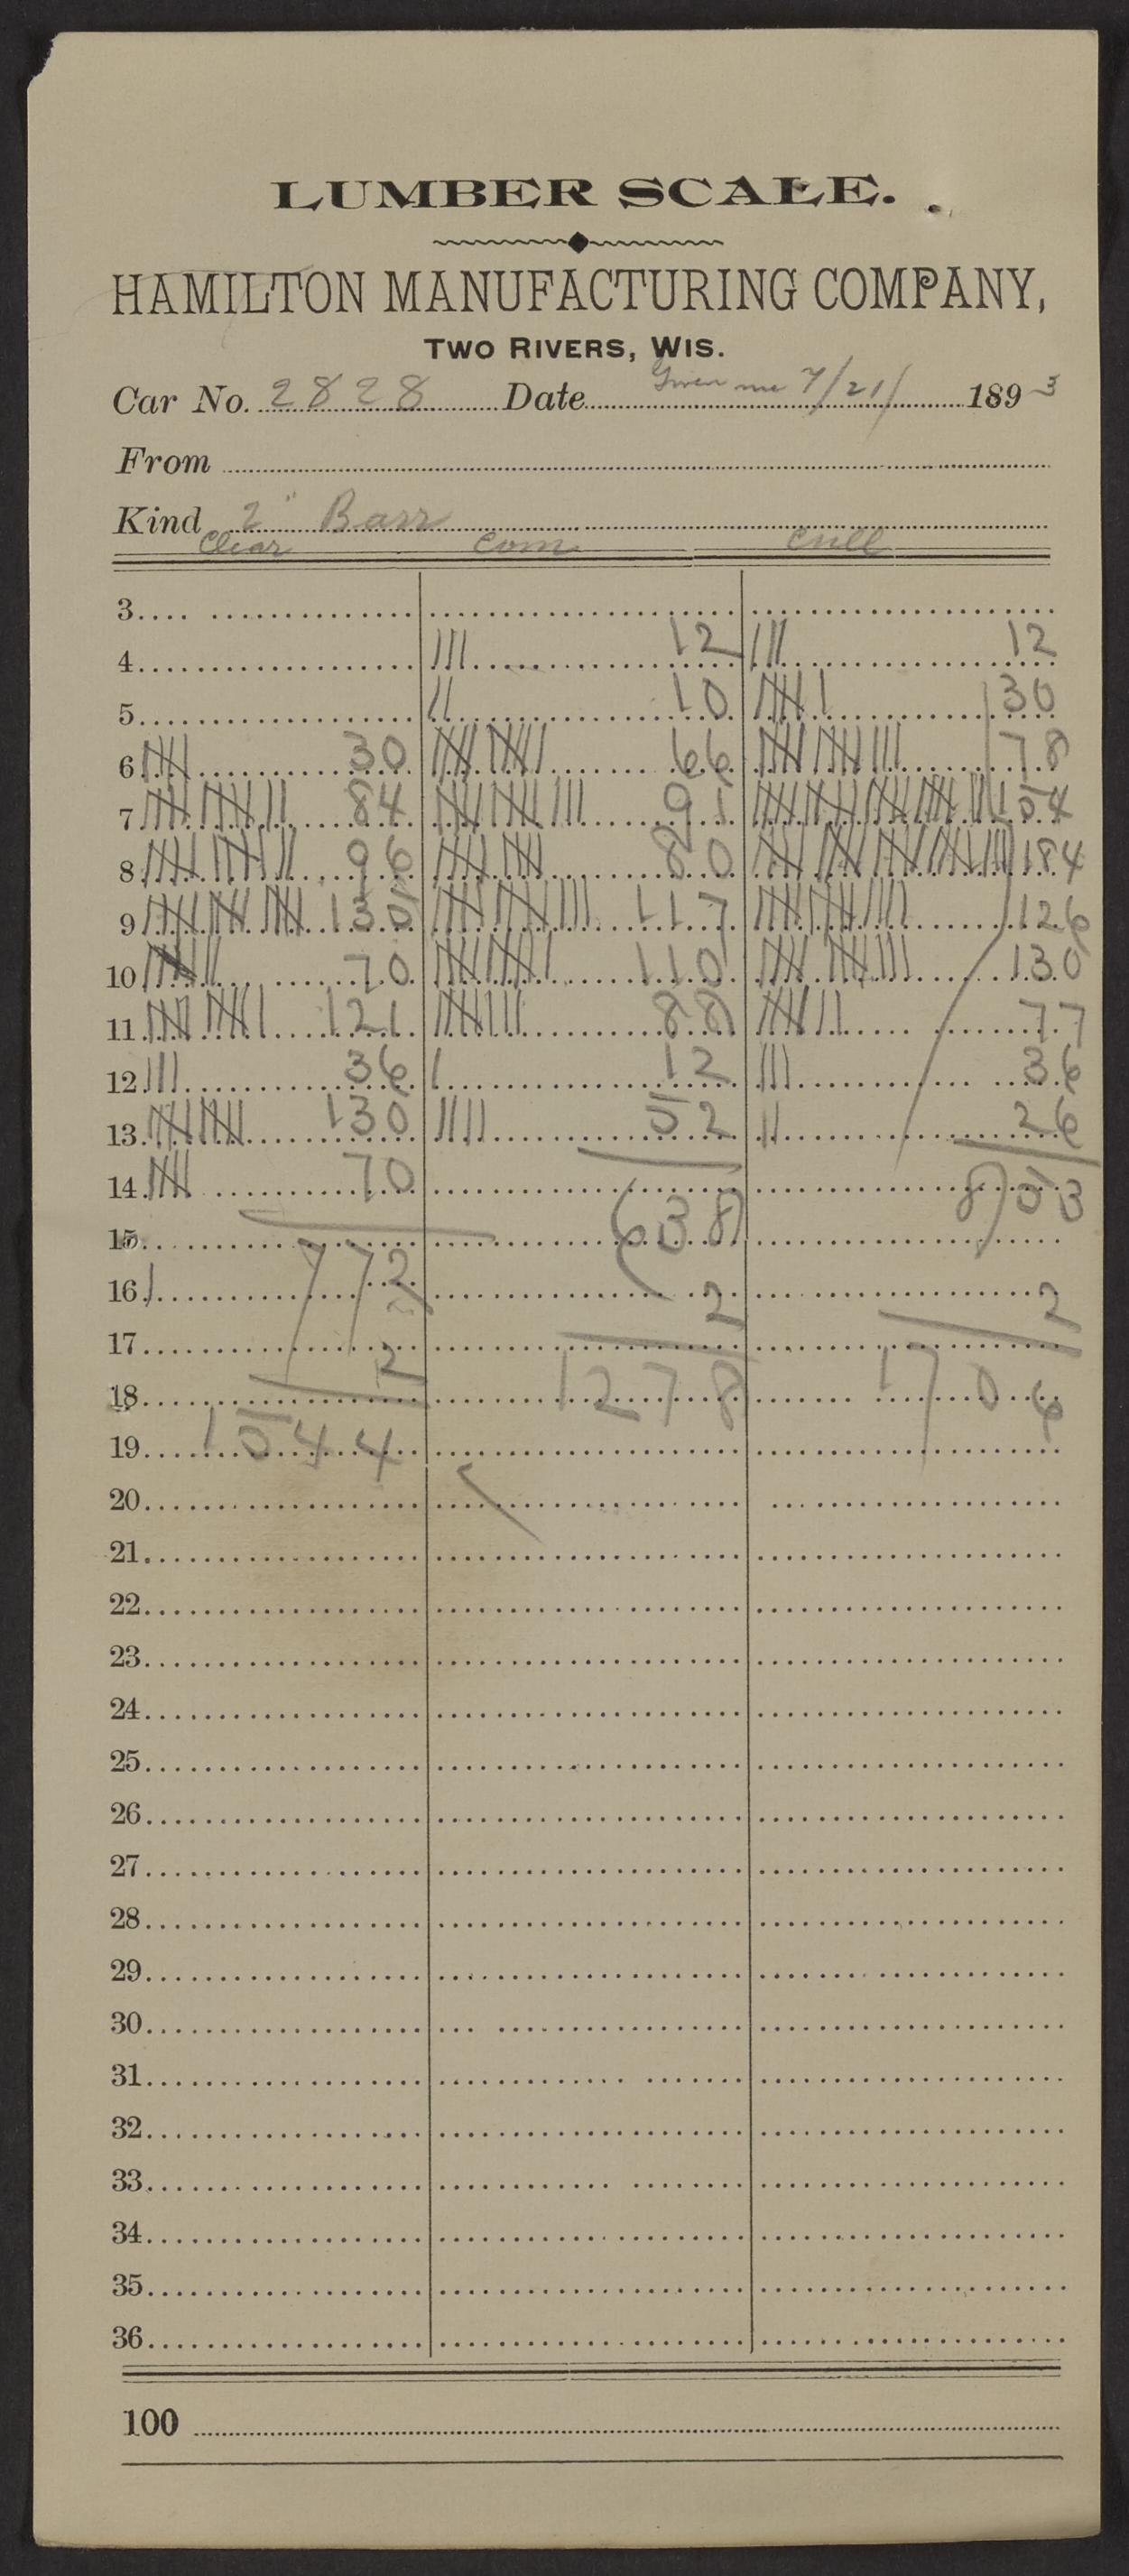 LUMBER SCALE.
HAMILTON MANUFACTURING COMPANY,
TWO RIVERS, WIS.
Car No. 2828 Date Given me 7/21/ 1893
From
Kind 2" Barr
Clear Com Cull
3
4 12 12
5 10 30
6 30 66 78
7 84 91 154
8 96 80 184
9 135 117 126
10 70 110 130
11 121 88 77
12 36 12 36
13 130 52 26
14 70
638 853
15
772
16 2 2
17
2 1278 1706
18
19 1544
20
21
22
23
24
25
26
27
28
29
30
31
32
33
34
35
36
100